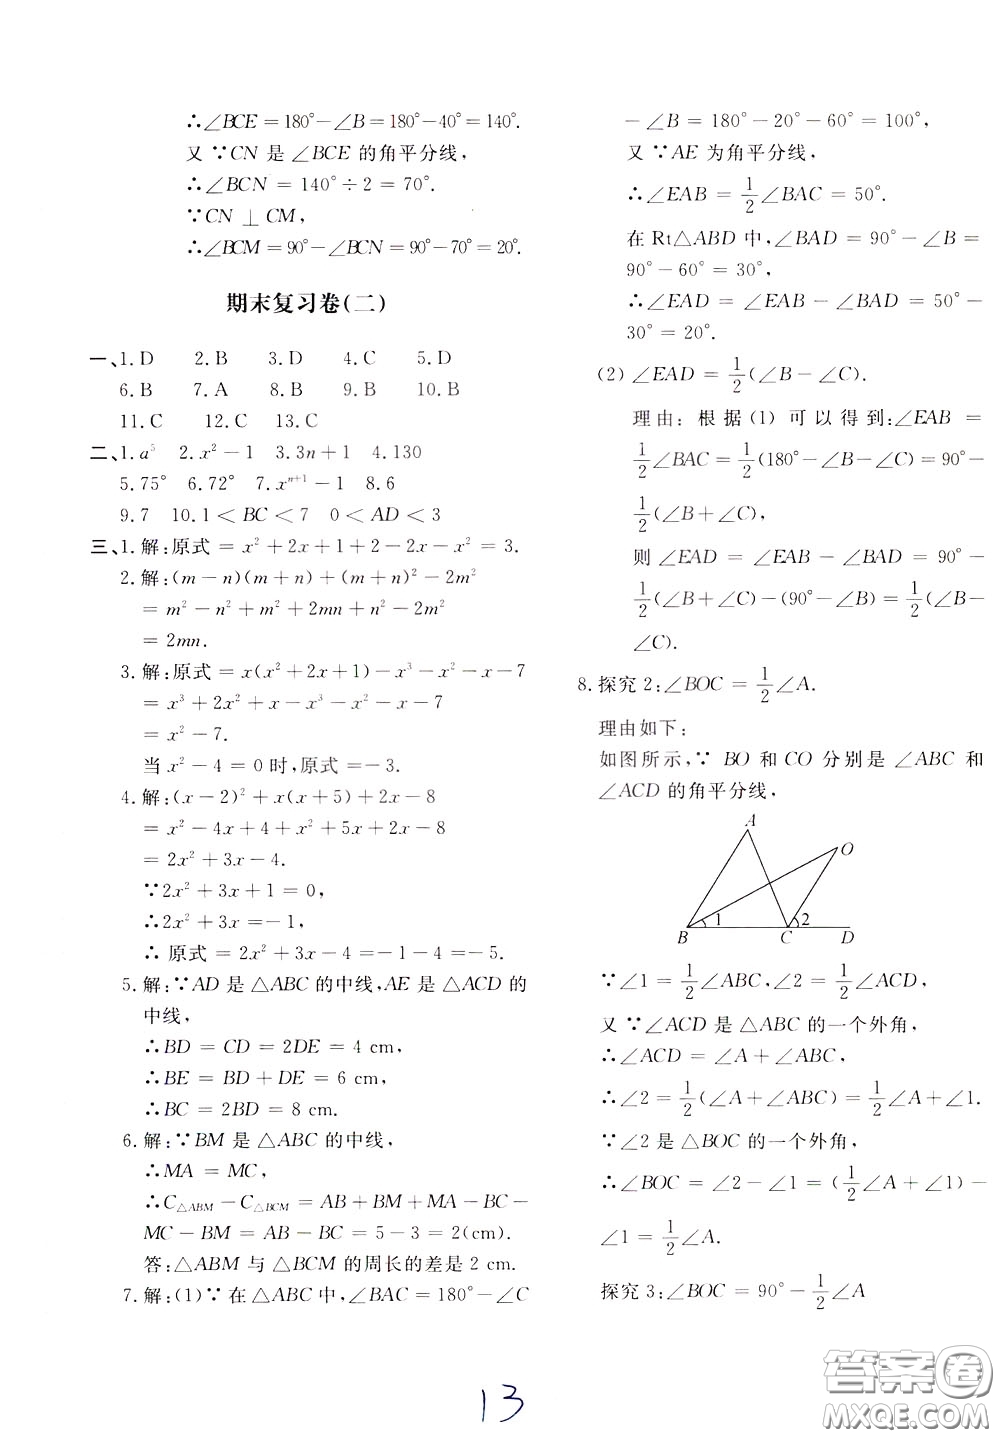 ∴∠BCE=180°-∠B=180°-40°=140°.
又 ∵CN 是 ∠BCE 的角平分线,
∴∠BCN = 140° ÷ 2 = 70°.
∵CN ⊥ CM,
∴∠BCM=90°-∠BCN=90°-70°=20°.
期末复习卷(二)
一、1. D 2. B 3. D 4. C 5. D
6. B 7. A 8. B 9. B 10. B
11. C 12. C 13. C
二、1. a⁵ 2. x²-1 3. 3n+1 4. 130
5. 75° 6. 72° 7. xⁿ⁺¹-1 8. 6
9. 7 10. 1 < BC < 7 0 < AD < 3
三、1. 解:原式 = x²+2x+1+2-2x-x² = 3.
2. 解:(m-n)(m+n)+(m+n)²-2m²
= m²-n²+m²+2mn+n²-2m²
= 2mn.
3. 解:原式 = x(x²+2x+1)-x³-x²-x-7
= x³+2x²+x-x³-x²-x-7
= x²-7.
当 x²-4=0 时,原式=-3.
4. 解:(x-2)²+x(x+5)+2x-8
= x²-4x+4+x²+5x+2x-8
= 2x²+3x-4.
∵2x²+3x+1=0,
∴2x²+3x=-1,
∴ 原式=2x²+3x-4=-1-4=-5.
5. 解:∵AD 是 △ABC 的中线,AE 是 △ACD 的
中线,
∴BD = CD = 2DE = 4 cm,
∴BE = BD + DE = 6 cm,
∴BC = 2BD = 8 cm.
6. 解:∵BM 是 △ABC 的中线,
∴MA = MC,
∴C△ABM-C△BCM=AB+BM+MA-BC-
MC-BM=AB-BC=5-3=2(cm).
答:△ABM 与 △BCM 的周长的差是 2 cm.
7. 解:(1)∵ 在 △ABC 中,∠BAC = 180°-∠C
-∠B = 180°-20°-60° = 100°,
又 ∵AE 为角平分线,
∴∠EAB = 1/2∠BAC = 50°.
在 Rt△ABD 中,∠BAD = 90°-∠B =
90°-60° = 30°,
∴∠EAD = ∠EAB - ∠BAD = 50°-
30° = 20°.
(2) ∠EAD = 1/2(∠B-∠C).
理由:根据(1)可以得到:∠EAB =
1/2∠BAC = 1/2(180°-∠B-∠C) = 90°-
1/2(∠B+∠C),
则 ∠EAD = ∠EAB - ∠BAD = 90°-
1/2(∠B+∠C)-(90°-∠B) = 1/2(∠B-
∠C).
8. 探究 2:∠BOC = 1/2∠A.
理由如下:
如图所示,∵ BO 和 CO 分别是 ∠ABC 和
∠ACD 的角平分线,
A
O
1
2
B
C
D
∵∠1 = 1/2∠ABC,∠2 = 1/2∠ACD,
又 ∵∠ACD 是 △ABC 的一个外角,
∴∠ACD = ∠A+∠ABC,
∴∠2 = 1/2(∠A+∠ABC) = 1/2∠A+∠1.
∵∠2 是 △BOC 的一个外角,
∴∠BOC = ∠2-∠1 = (1/2∠A+∠1)-
∠1 = 1/2∠A.
探究 3:∠BOC = 90°-1/2∠A
13
答案卷
MXQE.COM